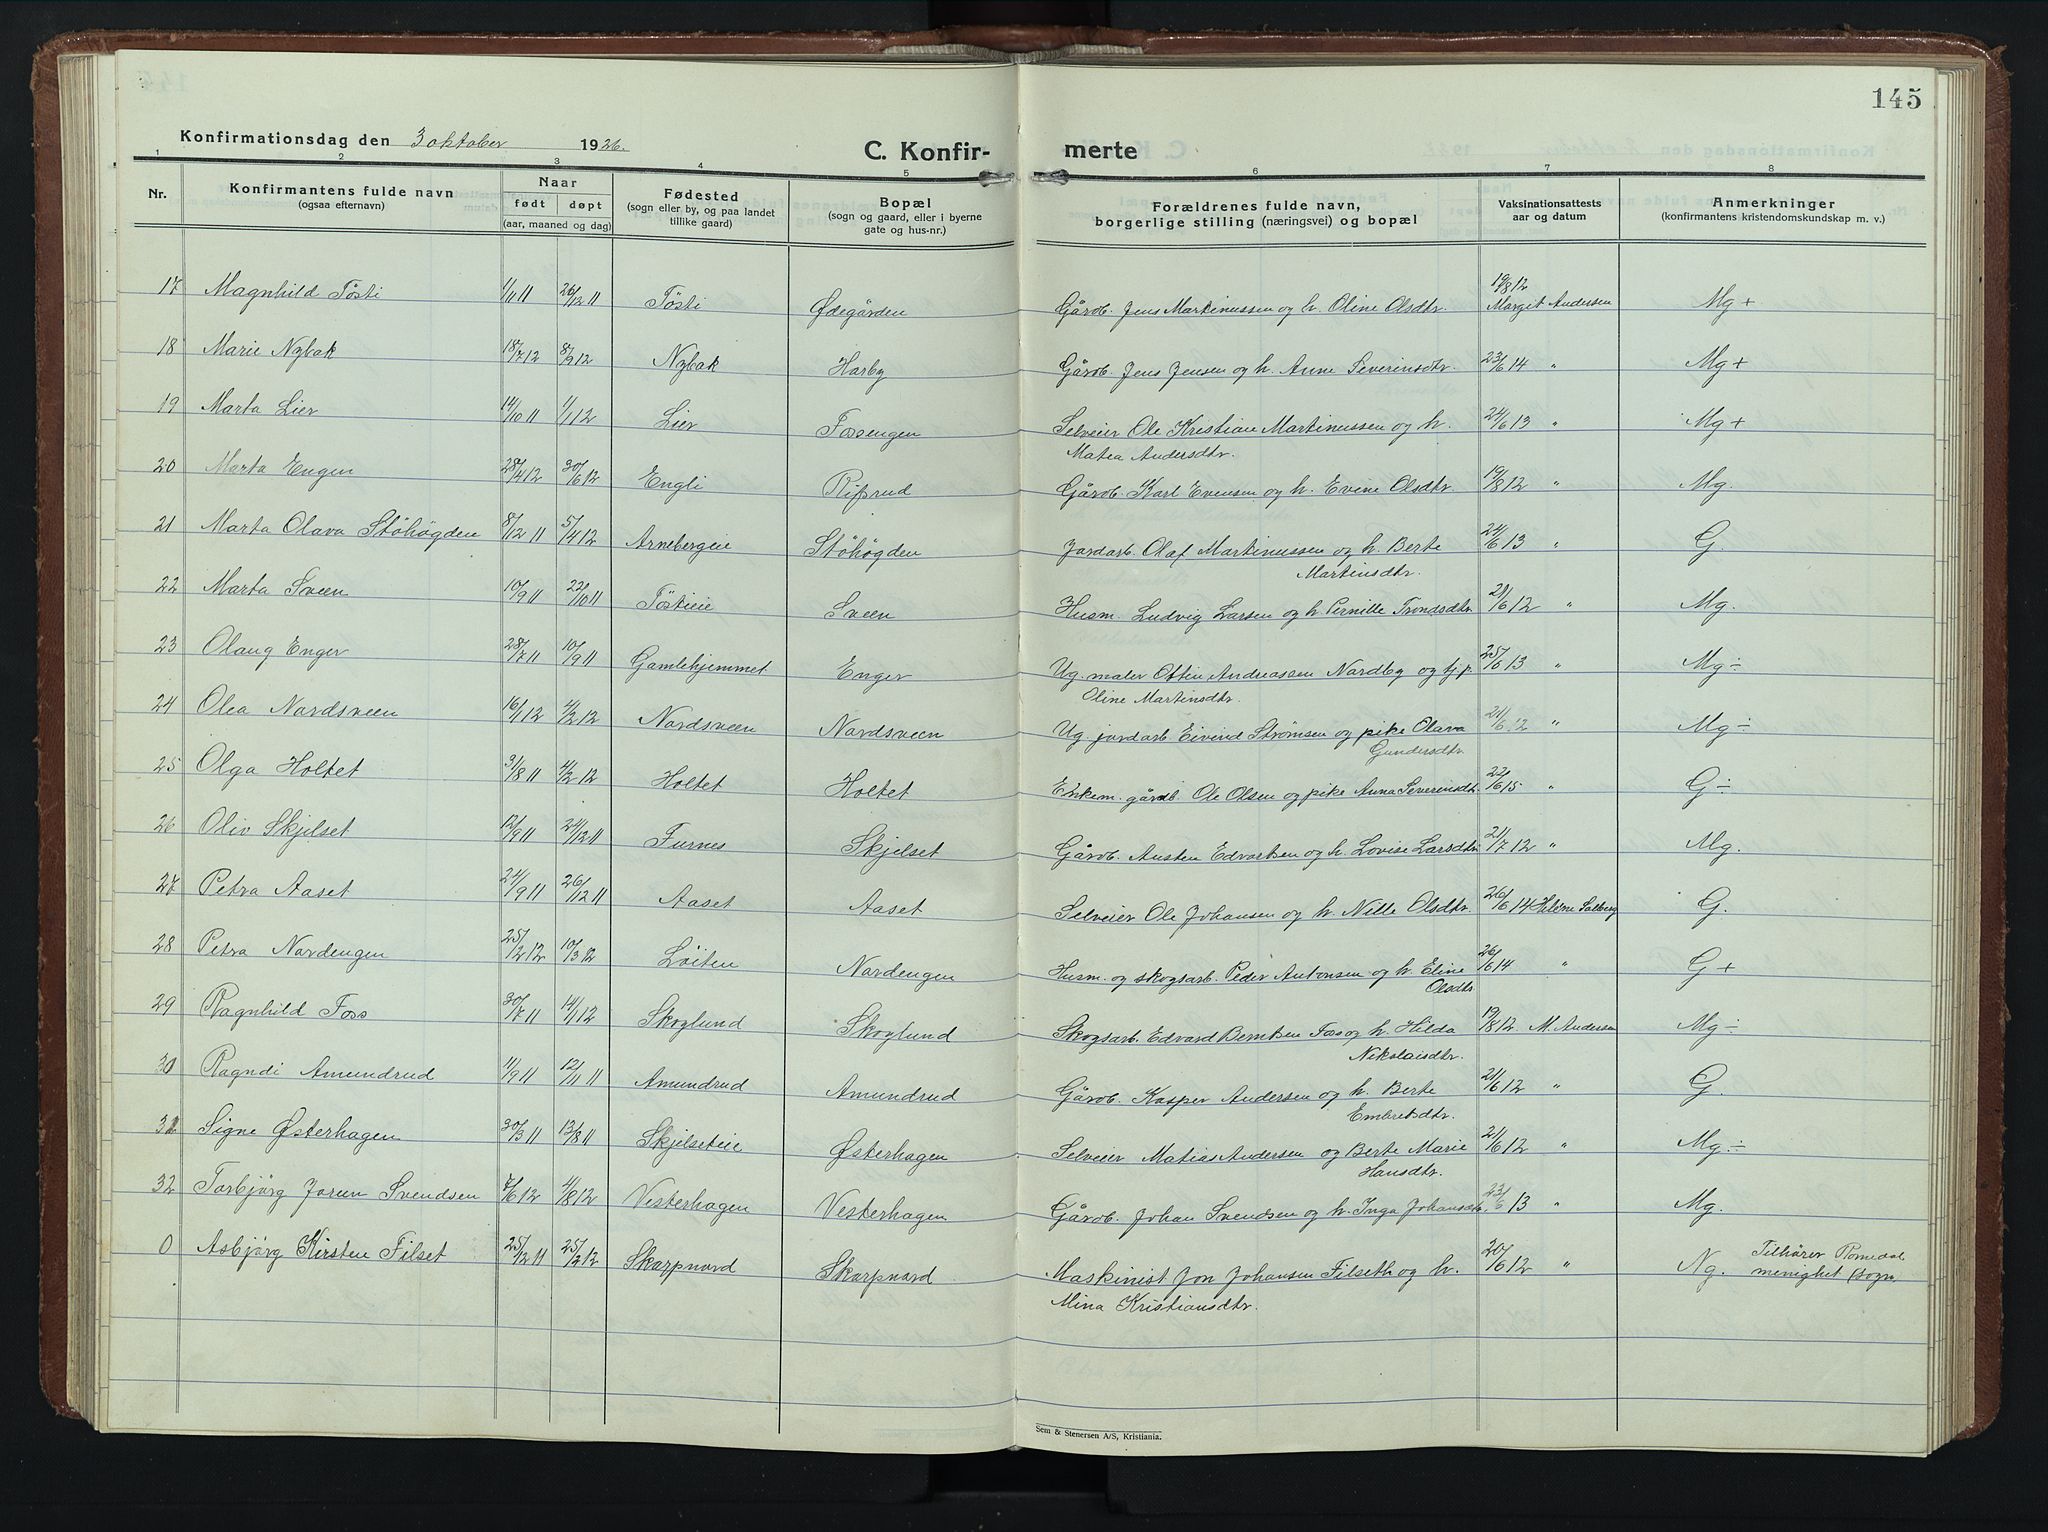 145
Konfirmationsdag den 3 oktober 1926.
C. Konfir- merte
1 2 3 4 5 6 7 8
Nr. Konfirmantens fulde navn (ogsaa efternavn) Naar født døpt (aar, maaned og dag) Fødested (sogn eller by, og paa landet tillike gaard) Bopæl (sogn og gaard, eller i byerne gate og hus-nr.) Forældrenes fulde navn, borgerlige stilling (næringsvei) og bopæl Vaksinationsattests aar og datum Anmerkninger (konfirmantens kristendomskundskap m. v.)
17 Magnhild Tösti 1/11 11 26/12 11 Tösti Ødegården Gårdb. Jens Martinussen og h. Oline Olsdtr. 19/8 12 Margit Andersen Mg +
18 Marie Nybak 18/7 12 8/9 12 Nybak Harby Gårdb. Jens Jensen og h. Anne Severinsdtr. 23/6 14 " Mg +
19 Marta Lier 14/10 11 1/1 12 Lier Fossengen Selveier Ole Kristian Martinussen og h. 24/6 13 " Mg +
Matea Andersdtr.
20 Marta Engen 28/4 12 30/6 12 Engli Rifsrud Gårdb. Karl Evensen og h. Evine Olsdtr. 19/8 12 " Mg.
21 Marta Olava Stöhögden 8/12 11 5/4 12 Arnebergeie Stöhögden Jordarb. Olaf Martinussen og h. Berte 24/6 13 " G.
Martinsdtr.
22 Marta Sveen 10/9 11 22/10 11 Töstieie Sveen Husm. Ludvig Larsen og h. Pernille Trondsdtr. 21/6 12 " Mg.
23 Olaug Enger 28/7 11 10/9 11 Gamlehjemmet Enger Ug. maler Ottin Andreassen Nordby og tj.p. 25/6 13 " Mg ÷
Oline Martinsdtr.
24 Olea Nordsveen 16/1 12 4/2 12 Nordsveen Nordsveen Ug. jordarb. Eivind Strømsen og pike Olava 21/6 12 " Mg ÷
Gundersdtr.
25 Olga Holtet 31/8 11 4/2 12 Holtet Holtet Enkem. gårdb. Ole Olsen og pike Anna Severinsdtr. 22/6 15 " G ÷
26 Oliv Skjelset 12/9 11 24/12 11 Furnes Skjelset Gårdb. Austen Edvartsen og h. Lovise Larsdtr. 21/7 12 " Mg.
27 Petra Aaset 24/9 11 26/12 11 Aaset Aaset Selveier Ole Johansen og h. Nille Olsdtr. 26/6 14 Solberg G.
28 Petra Nordengen 25/2 12 10/3 12 Löiten Nordengen Husm. og skogsarb. Peder Antonsen og h. Eline 26/6 14 " G +
Olsdtr.
29 Ragnhild Foss 30/7 11 14/1 12 Skoglund Skoglund Skogsarb. Edvard Berntsen Foss og h. Hilda 19/8 12 M. Andersen Mg ÷
Nikolaisdtr.
30 Ragndi Amundrud 11/9 11 12/11 11 Amundrud Amundrud Gårdb. Kasper Andersen og h. Berte 21/6 12 " G.
Embretsdtr.
31 Signe Østerhagen 30/3 11 13/8 11 Skjelseteie Østerhagen Selveier Matias Andersen og Berte Marie 21/6 12 " Mg ÷
Hansdtr.
32 Torbjörg Jorun Svendsen 7/6 12 4/8 12 Vesterhagen Vesterhagen Gårdb. Johan Svendsen og h. Inga Johansdtr. 23/6 13 " Mg.
0 Asbjörg Kirsten Filset 25/12 11 25/2 12 Skarpnord Skarpnord Maskinist Jon Johansen Filseth og h. 20/6 12 " Ng. Tilhører Romedal
Mina Kristiansdtr. menighet (sogn)
Sem & Stenersen A/S, Kristiania.